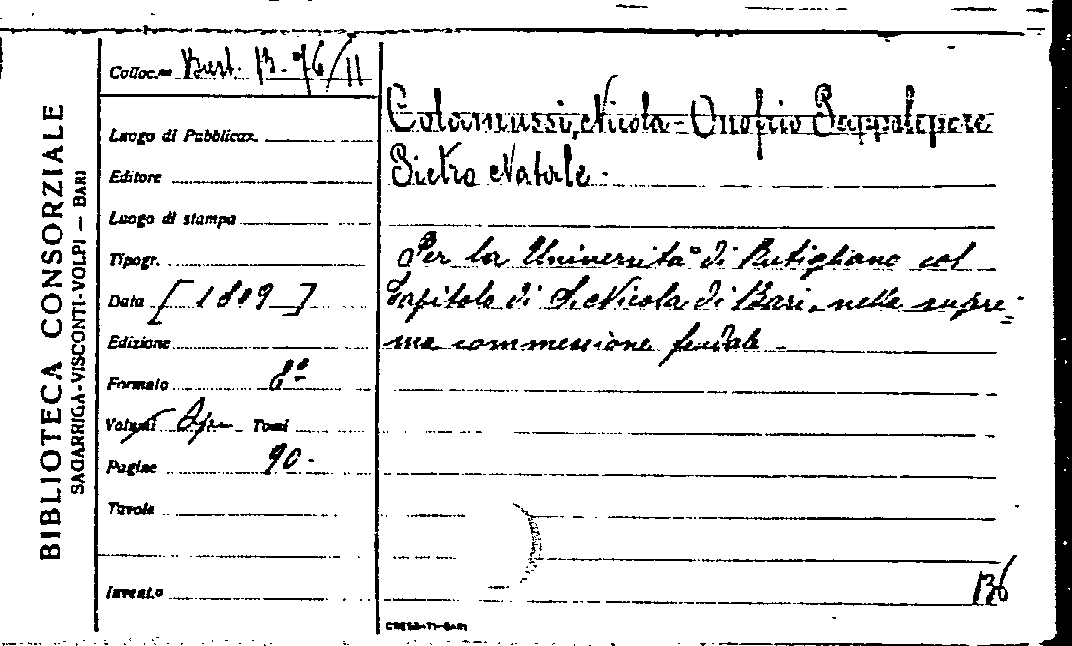 BIBLIOTECA CONSORZIALE
SAGARRIGA-VISCONTI-VOLPI — BARI
Colloc.ne Bart. B. 76/11
Luogo di Pubblicaz.
Editore
Luogo di stampa
Tipogr.
Data [1809]
Edizione
Formato 8º
Volumi Op. Tomi
Pagine 90.
Tavole
Invent.o
Colamussi, Nicola - Onofrio Pappalepore
Pietro Natale.
Per la Università di Rutigliano col
Capitolo di S. Nicola di Bari, nella supre=
ma commessione feudale.
136